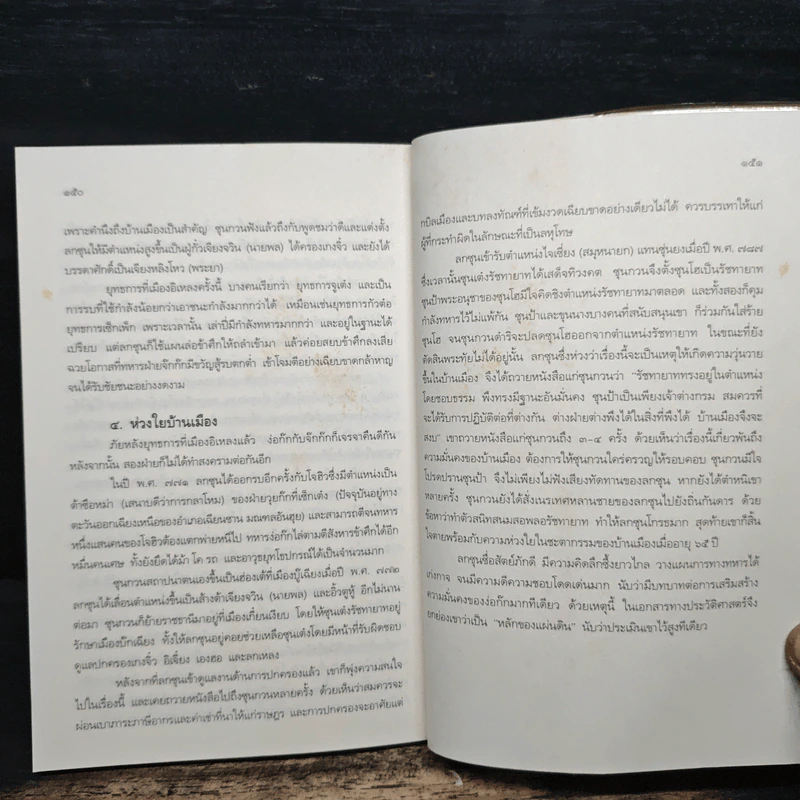 ๑๕๐
เพราะคำนึงถึงบ้านเมืองเป็นสำคัญ ซุนกวนฟังแล้วถึงกับพูดชมว่าดีและแต่งตั้ง
ลกซุนให้มีตำแหน่งสูงขึ้นเป็นฝู่กั๋วเจียงจวิน (นายพล) ได้ครองเกงจิ๋ว และยังได้
บรรดาศักดิ์เป็นเจียงหลิงโหว (พระยา)
ยุทธการที่เมืองอิเหลงครั้งนี้ บางคนเรียกว่า ยุทธการจูเต๋ง และเป็น
การรบที่ใช้กำลังน้อยกว่าเอาชนะกำลังมากกว่าได้ เหมือนเช่นยุทธการกัวต๋อ
ยุทธการเซ็กเพ็ก เพราะเวลานั้น เล่าปี่มีกำลังทหารมากกว่า และอยู่ในฐานะได้
เปรียบ แต่ลกซุนก็ใช้แผนล่อข้าศึกให้ถลำเข้ามา แล้วค่อยสยบข้าศึกลงเสีย
ฉวยโอกาสที่ทหารฝ่ายจ๊กก๊กมีขวัญสู้รบตกต่ำ เข้าโจมตีอย่างเฉียบขาดกล้าหาญ
จนได้รับชัยชนะอย่างงดงาม
๔. ห่วงใยบ้านเมือง
ภัยหลังยุทธการที่เมืองอิเหลงแล้ว ง่อก๊กกับจ๊กก๊กก็เจรจาคืนดีกัน
หลังจากนั้น สองฝ่ายก็ไม่ได้ทำสงครามต่อกันอีก
ในปี พ.ศ. ๗๗๑ ลกซุนได้ออกรบอีกครั้งกับโจฮิวซึ่งมีตำแหน่งเป็น
ต้าซือหม่า (เสนาบดีว่าการกลาโหม) ของฝ่ายวุยก๊กที่เซ็กเต๋ง (ปัจจุบันอยู่ทาง
ตะวันออกเฉียงเหนือของอำเภอเฉียนซาน มณฑลอันฮุย) และสามารถตีจนทหาร
หนึ่งแสนคนของโจฮิวต้องแตกพ่ายหนีไป ทหารง่อก๊กไล่ตามตีสังหารข้าศึกได้อีก
หมื่นคนเศษ ทั้งยังยึดได้ม้า โค รถ และอาวุธยุทโธปกรณ์ได้เป็นจำนวนมาก
ซุนกวนสถาปนาตนเองขึ้นเป็นฮ่องเต้ที่เมืองบู๊เฉียงเมื่อปี พ.ศ. ๗๗๒
ลกซุนได้เลื่อนตำแหน่งขึ้นเป็นส้างต้าเจียงจวิน (นายพล) และอิ้วตูหู้ อีกไม่นาน
ต่อมา ซุนกวนก็ย้ายราชธานีมาอยู่ที่เมืองเกี๋ยนเงียบ โดยให้ซุนเต๋งรัชทายาทอยู่
รักษาเมืองบู๊เฉียง ทั้งให้ลกซุนอยู่คอยช่วยเหลือซุนเต๋งโดยมีหน้าที่รับผิดชอบ
ดูแลปกครองเกงจิ๋ว อิเจี๋ยง เองฮอ และลกเหลง
หลังจากที่ลกซุนเข้าดูแลงานด้านการปกครองแล้ว เขาก็พุ่งความสนใจ
ไปในเรื่องนี้ และเคยถวายหนังสือไปถึงซุนกวนหลายครั้ง ด้วยเห็นว่าสมควรจะ
ผ่อนเบาภาระภาษีอากรและค่าเช่าที่นาให้แก่ราษฎร และการปกครองจะอาศัยแต่
๑๕๑
กบิลเมืองและบทลงทัณฑ์ที่เข้มงวดเฉียบขาดอย่างเดียวไม่ได้ ควรบรรเทาให้แก่
ผู้ที่กระทำผิดในลักษณะที่เป็นลหุโทษ
ลกซุนเข้ารับตำแหน่งไจเซี่ยง (สมุหนายก) แทนซุ่นยงเมื่อปี พ.ศ. ๗๘๗
ซึ่งเวลานั้นซุนเต๋งรัชทายาทได้เสด็จทิวงคต ซุนกวนจึงตั้งซุนโฮเป็นรัชทายาท
ซุนป๋าพระอนุชาของซุนโฮมีใจคิดชิงตำแหน่งรัชทายาทมาตลอด และทั้งสองก็คุม
กำลังทหารไว้ไม่แพ้กัน ซุนป๋าและขุนนางบางคนที่สนับสนุนเขา ก็ร่วมกันใส่ร้าย
ซุนโฮ จนซุนกวนดำริจะปลดซุนโฮออกจากตำแหน่งรัชทายาท ในขณะที่ยัง
ตัดสินพระทัยไม่ได้อยู่นั้น ลกซุนซึ่งห่วงว่าเรื่องนี้จะเป็นเหตุให้เกิดความวุ่นวาย
ขึ้นในบ้านเมือง จึงได้ถวายหนังสือแก่ซุนกวนว่า "รัชทายาททรงอยู่ในตำแหน่ง
โดยชอบธรรม พึงทรงมีฐานะอันมั่นคง ซุนป๋าเป็นเพียงเจ้าต่างกรม สมควรที่
จะได้รับการปฏิบัติต่อที่ต่างกัน ต่างฝ่ายต่างพึงได้ในสิ่งที่พึงได้ บ้านเมืองจึงจะ
สงบ" เขาถวายหนังสือแก่ซุนกวนถึง ๓-๔ ครั้ง ด้วยเห็นว่าเรื่องนี้เกี่ยวพันถึง
ความมั่นคงของบ้านเมือง ต้องการให้ซุนกวนใคร่ครวญให้รอบคอบ ซุนกวนมีใจ
โปรดปรานซุนป๋า จึงไม่เพียงไม่ฟังเสียงทัดทานของลกซุน หากยังได้ตำหนิเขา
หลายครั้ง ซุนกวนยังได้สั่งเนรเทศหลานชายของลกซุนไปยังถิ่นกันดาร ด้วย
ข้อหาว่าทำตัวสนิทสนมสอพลอรัชทายาท ทำให้ลกซุนโกรธมาก สุดท้ายเขาก็สิ้น
ใจตายพร้อมกับความห่วงใยในชะตากรรมของบ้านเมืองเมื่ออายุ ๖๕ ปี
ลกซุนซื่อสัตย์ภักดี มีความคิดลึกซึ้งยาวไกล วางแผนการทางทหารได้
เก่งกาจ จนมีความดีความชอบโดดเด่นมาก นับว่ามีบทบาทต่อการเสริมสร้าง
ความมั่นคงของง่อก๊กมากทีเดียว ด้วยเหตุนี้ ในเอกสารทางประวัติศาสตร์จึง
ยกย่องเขาว่าเป็น "หลักของแผ่นดิน" นับว่าประเมินเขาไว้สูงทีเดียว